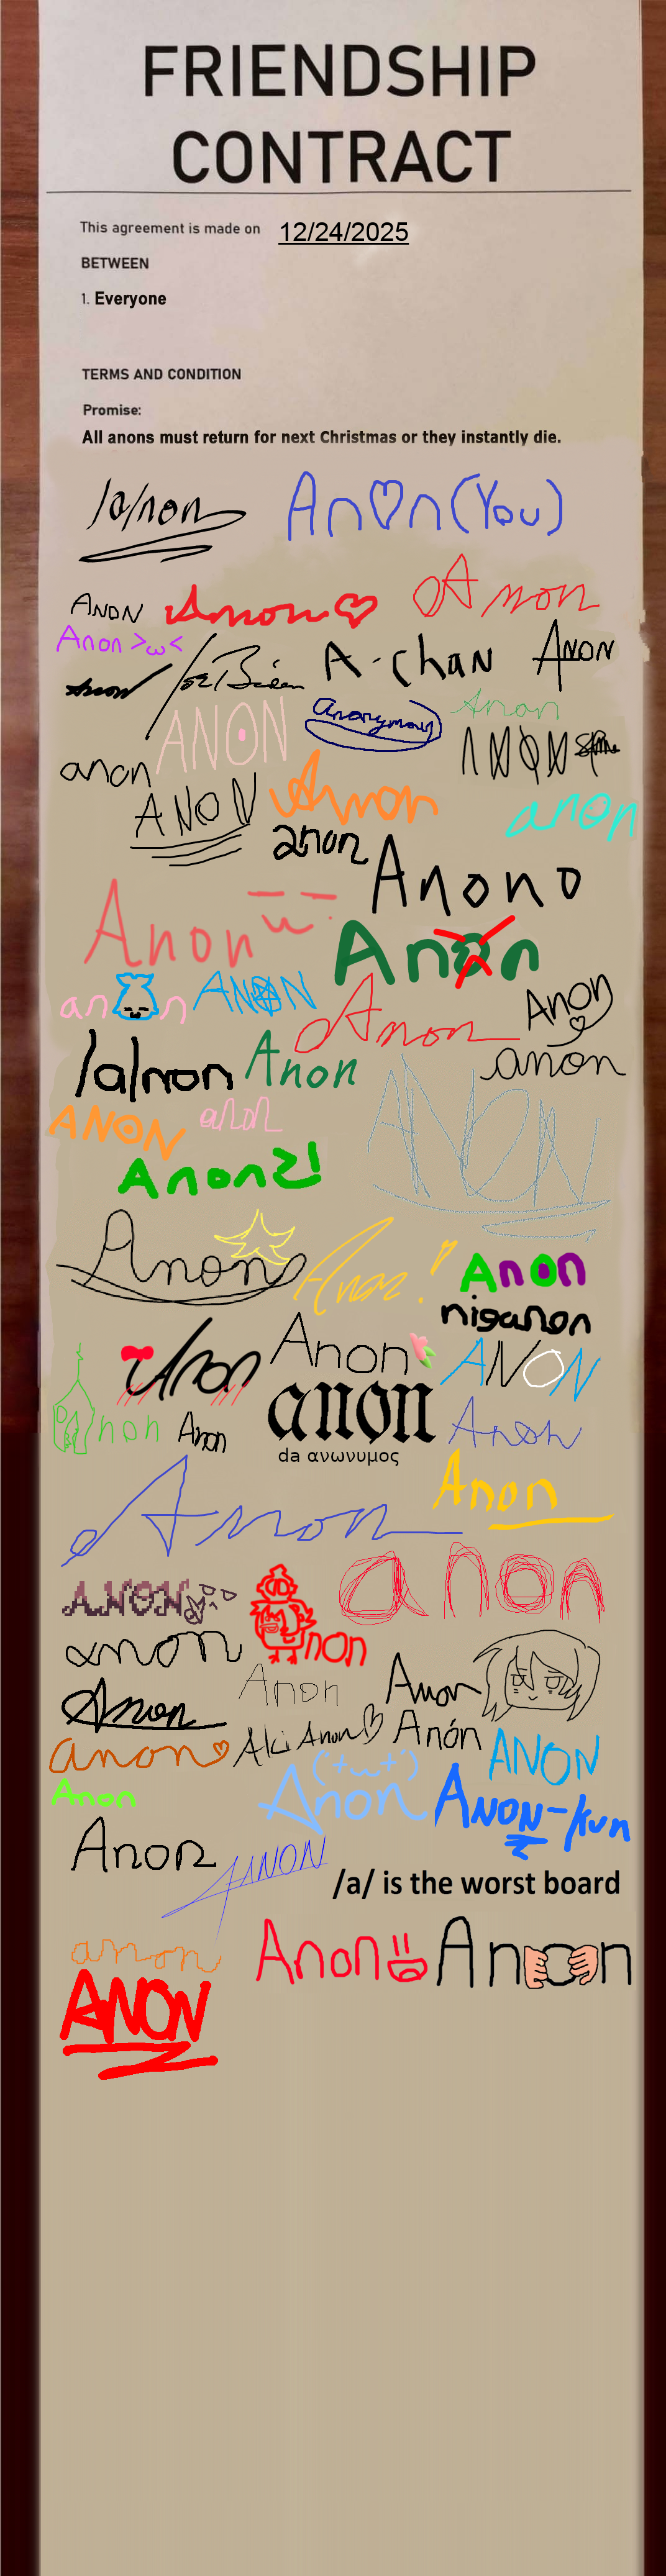 FRIENDSHIP
CONTRACT
This agreement is made on 12/24/2025
BETWEEN
1. Everyone
TERMS AND CONDITION
Promise:
All anons must return for next Christmas or they instantly die.
/a/non
An♡n (You)
ANON
Anon♡
Anon
Anon >ω<
Anon
Joe Biden
A-chan
ANON
ANON
Anonymous
Anon
anon
ANON
ANON
Anon
anon
anon
Anono
Anon
Anon
anon
ANON
Anon
Anon
/a/non
Anon
anon
ANON
anon
ANON
Anonz!
Anon
Anon!
Anon
niganon
Anon
Anon
ANON
Anon
Anon
anon
Anon
da ανωνυμος
Anon
Anon
ANON
anon
non
anon
Anon
Anon
Anon
Aki Anon♡
Anón
anon♡
ANON
Anon
Anon
('+ω+')
ANON-kun
Anon
ANON
/a/ is the worst board
anon
Anon
Anon
ANON